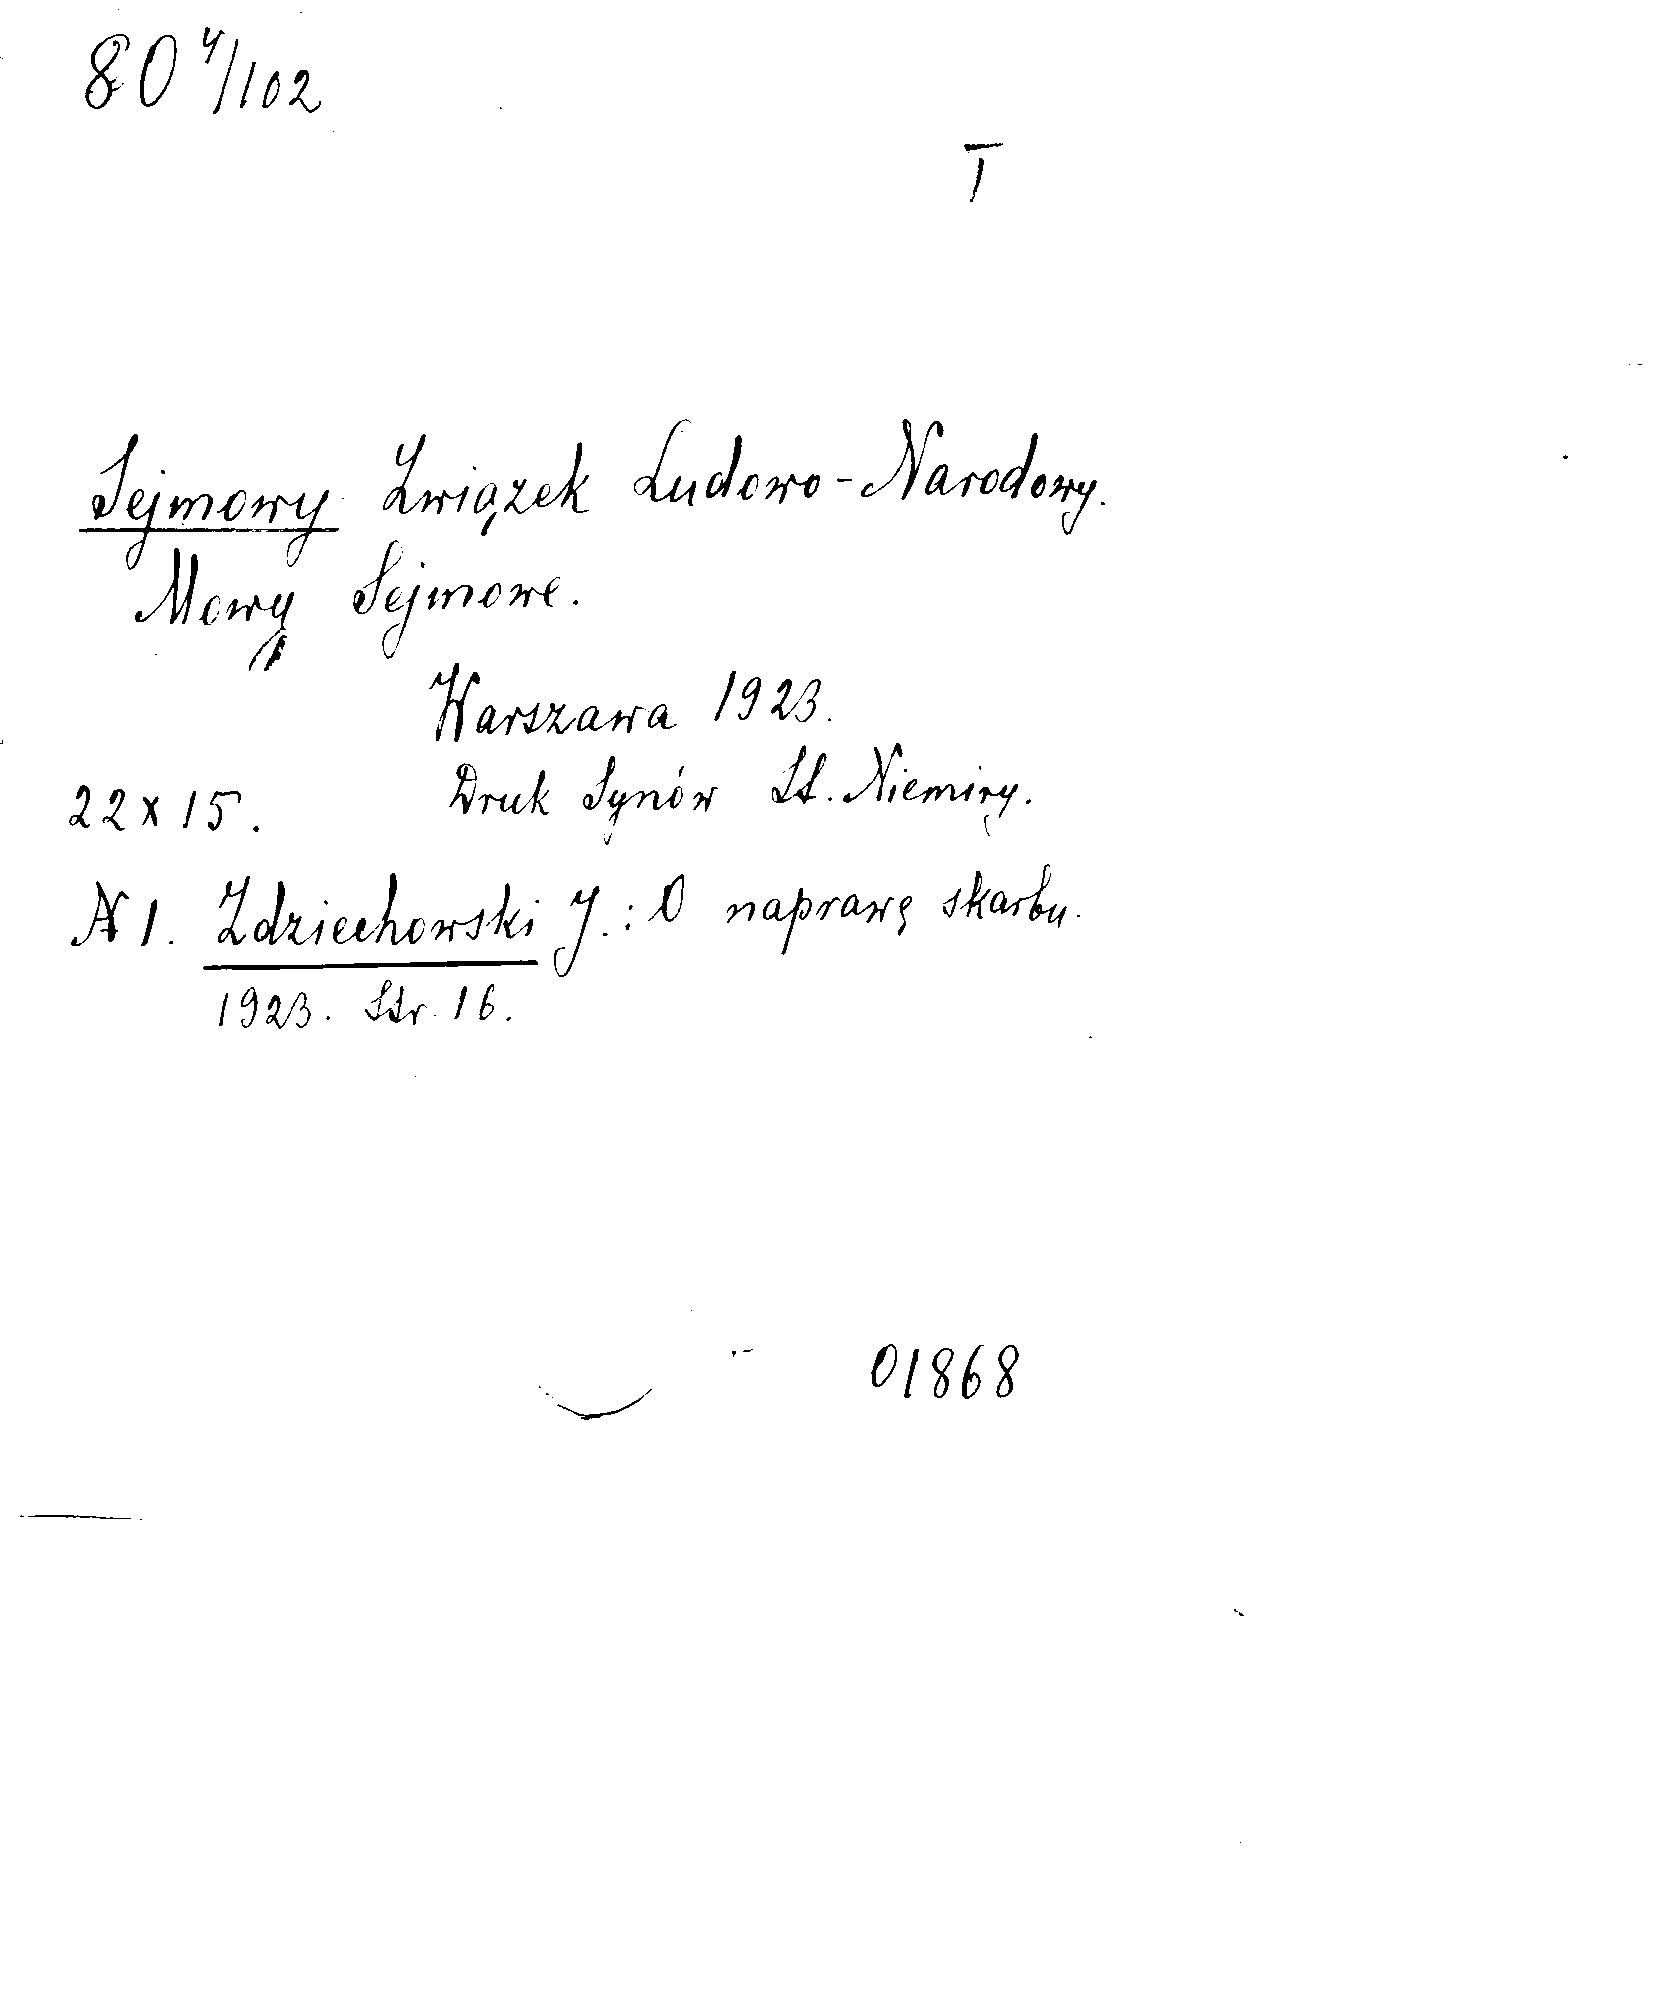 80 4/102
T
Sejmowy Związek Ludowo-Narodowy.
Mowy Sejmowe.
Warszawa 1923.
22 x 15. Druk Synów St. Niemiry.
N 1. Zdziechowski J.: O naprawę skarbu.
1923. Str. 16.
01868